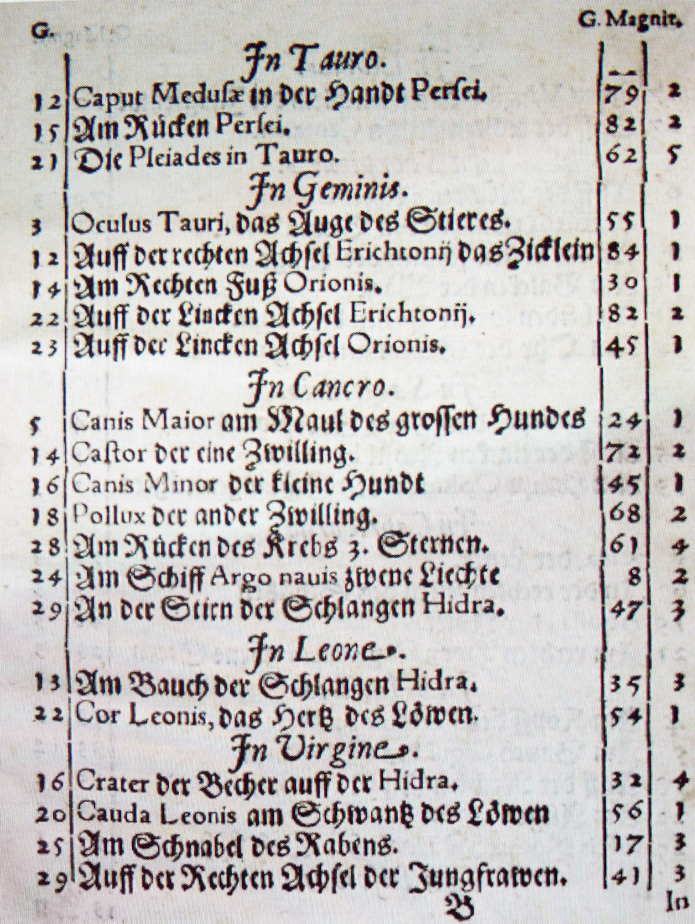 G. G. Magnit.
In Tauro.
12 Caput Medusæ in der Handt Persei. 79 2
15 Am Rücken Persei. 82 2
21 Die Pleiades in Tauro. 62 5
In Geminis.
3 Oculus Tauri, das Auge des Stieres. 55 1
12 Auff der rechten Achsel Erichtonij das Zicklein 84 1
14 Am Rechten Fuß Orionis. 30 1
22 Auff der Lincken Achsel Erichtonij. 82 2
23 Auff der Lincken Achsel Orionis. 45 1
In Cancro.
5 Canis Maior am Maul des grossen Hundes 24 1
14 Castor der eine Zwilling. 72 2
16 Canis Minor der kleine Hundt 45 1
18 Pollux der ander Zwilling. 68 2
28 Am Rücken des Krebs 3. Sternen. 61 4
24 Am Schiff Argo nauis zwene Liechte 8 2
29 An der Stirn der Schlangen Hidra. 47 3
In Leone.
13 Am Bauch der Schlangen Hidra. 35 3
22 Cor Leonis, das Hertz des Löwen. 54 1
In Virgine.
16 Crater der Becher auff der Hidra. 32 4
20 Cauda Leonis am Schwantz des Löwen 56 1
25 Am Schnabel des Rabens. 17 3
29 Auff der Rechten Achsel der Jungfrawen. 41 3
B In